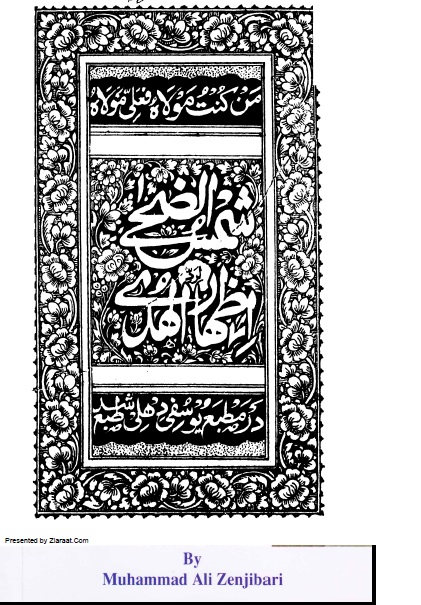 من كنت مولاه فعلي مولاه
شمس الضحى
اظهار الهدى
در مطبع يوسفى دهلى طبع شد
Presented by Ziaraat.Com
By
Muhammad Ali Zenjibari